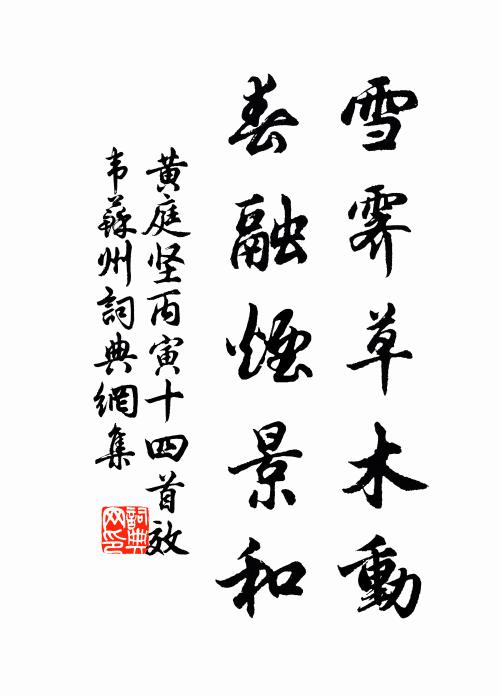 雪霽草木動
春融煙景和
黄庭坚丙寅十四首效
韦蘇州詞典網集
詞典
网印